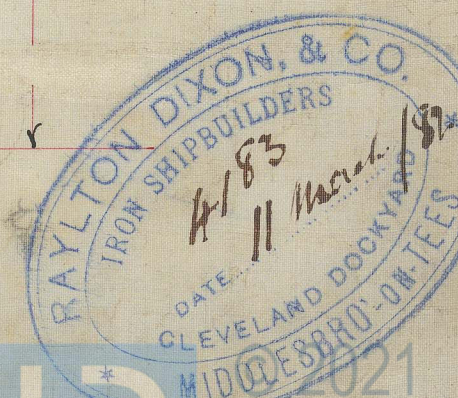 RAYLTON DIXON, & CO.
IRON SHIPBUILDERS
4183
11 March /82
DATE
CLEVELAND DOCKYARD
MIDDLESBRO'-ON-TEES
r
© 2021